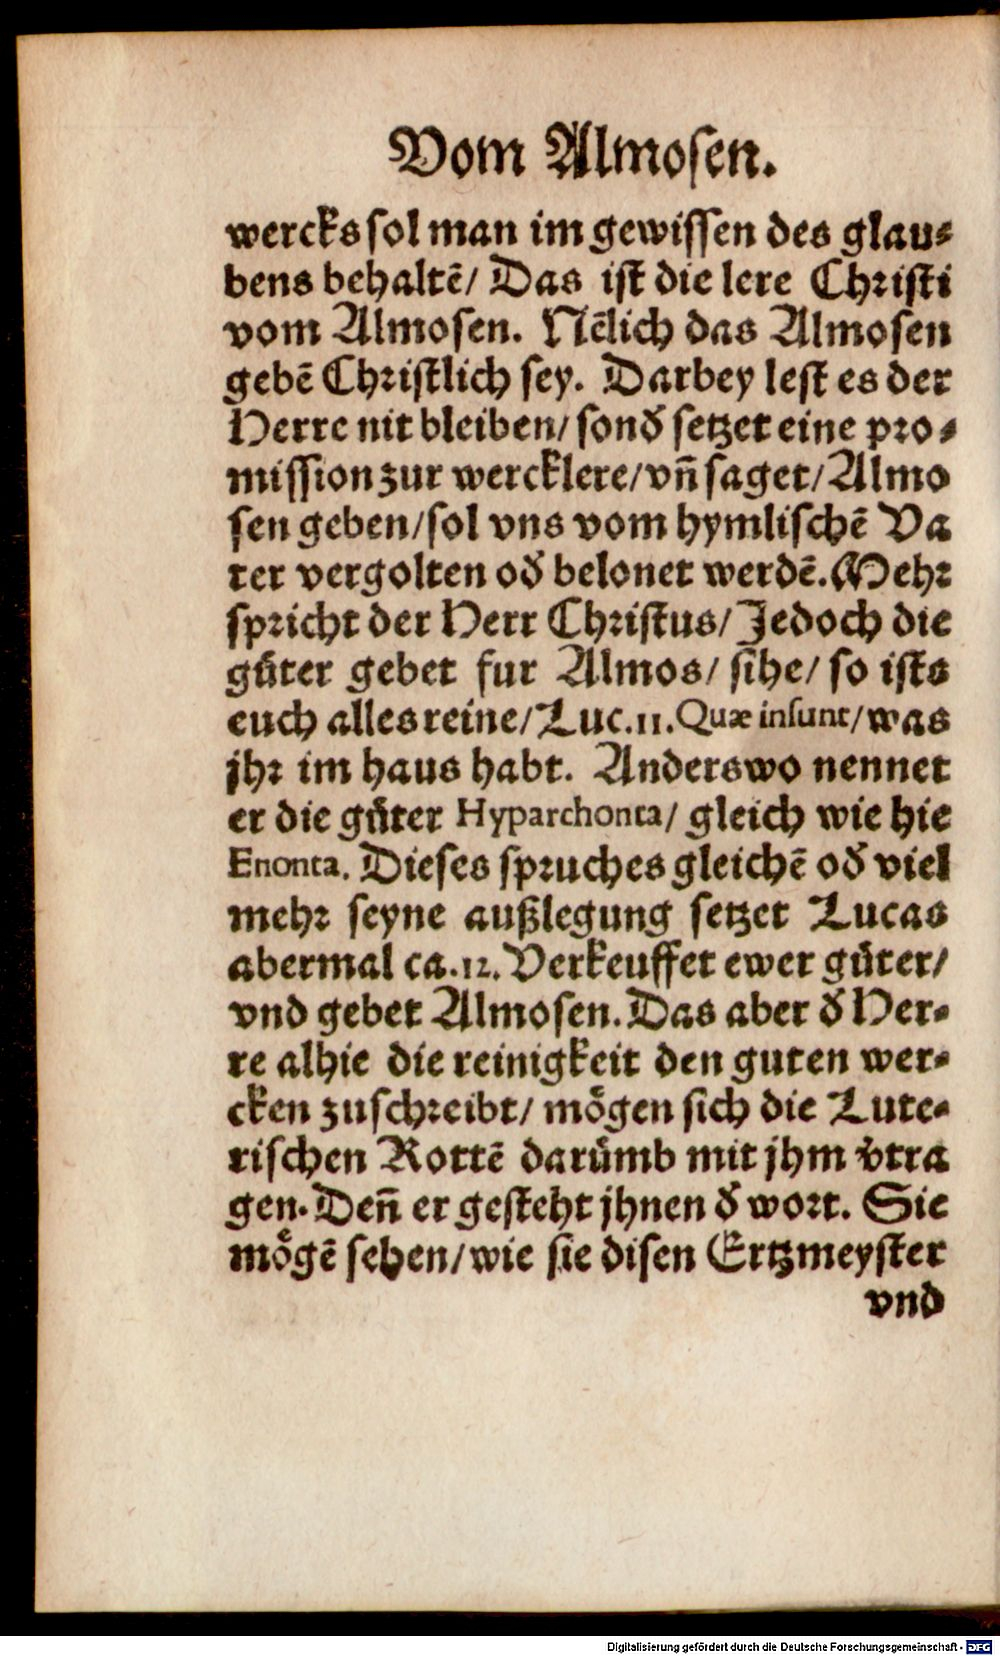 Vom Almosen.
wercks sol man im gewissen des glau⸗
bens behaltē/ Das ist die lere Christi
vom Almosen. Nēlich das Almosen
gebē Christlich sey. Darbey lest es der
Herre nit bleiben/ sonđ setzet eine pro⸗
mission zur wercklere/ vñ saget/ Almo
sen geben/ sol vns vom hymlischē Va
ter vergolten ođ belonet werdē. Mehr
spricht der Herr Christus/ Jedoch die
gůter gebet fur Almos/ sihe/ so ists
euch alles reine/ Luc.11. Quæ insunt/ was
jhr im haus habt. Anderswo nennet
er die gůter Hyparchonta/ gleich wie hie
Enonta. Dieses spruches gleichē ođ viel
mehr seyne außlegung setzet Lucas
abermal ca.12. Verkeuffet ewer gůter/
vnd gebet Almosen. Das aber đ Her⸗
re alhie die reinigkeit den guten wer⸗
cken zuschreibt/ mögen sich die Lute⸗
rischen Rottē darůmb mit jhm v̉tra
gen. Deñ er gesteht jhnen đ wort. Sie
mögē sehen/ wie sie disen Ertzmeyster
vnd
Digitalisierung gefördert durch die Deutsche Forschungsgemeinschaft - DFG